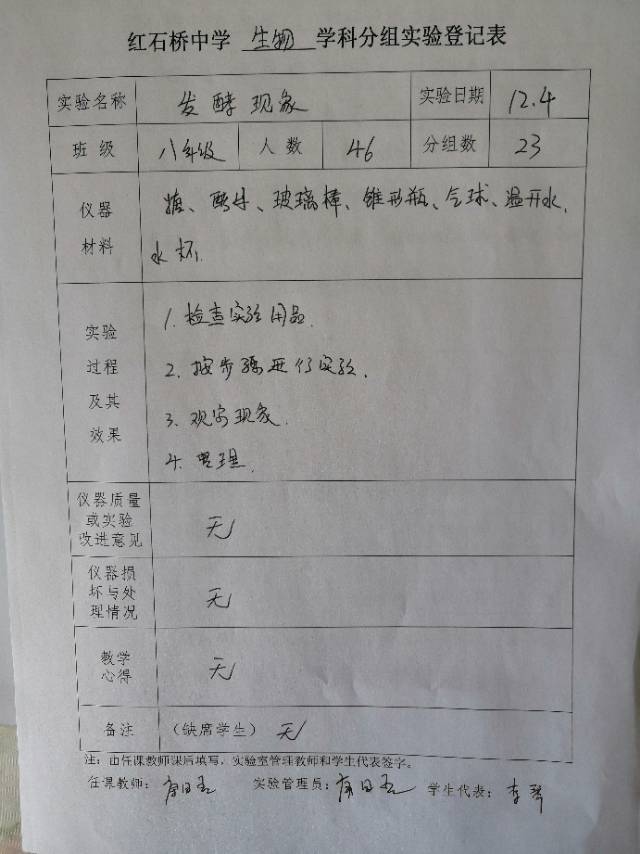 红石桥中学 生物 学科分组实验登记表
实验名称 发酵现象 实验日期 12.4
班 级 八年级 人 数 46 分组数 23
仪器 糖、酵母、玻璃棒、锥形瓶、气球、温开水、
材料 水杯.
实验 1. 检查实验用品.
过程 2. 按步骤进行实验.
及其 3. 观察现象.
效果 4. 整理.
仪器质量
或实验 无
改进意见
仪器损
坏与处 无
理情况
教学 无
心得
备注 (缺席学生) 无
注：由任课教师课后填写，实验室管理教师和学生代表签字。
任课教师： 实验管理员： 学生代表： 李琴